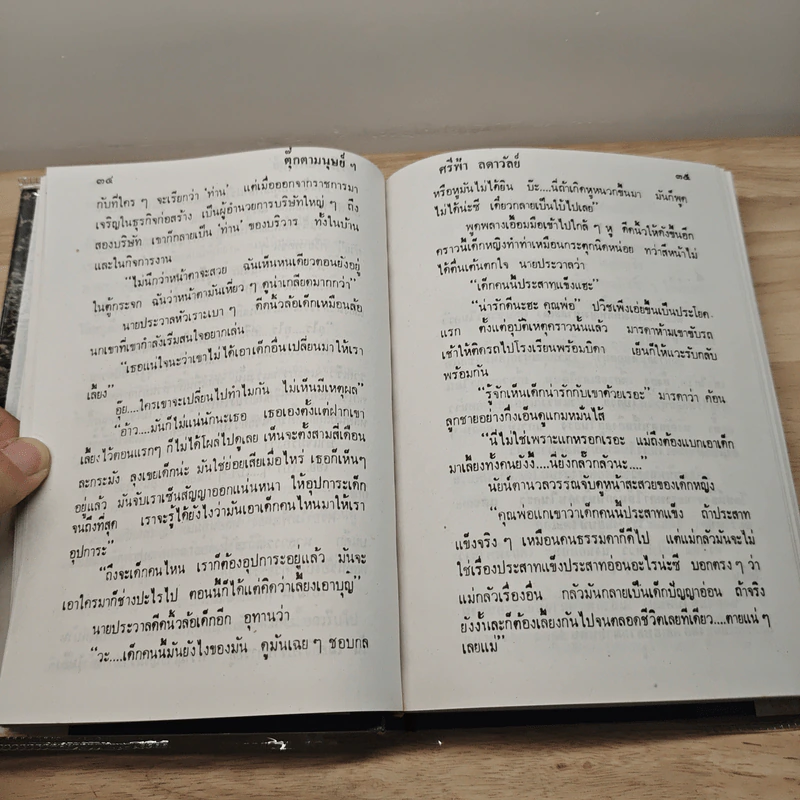 ๓๔
ตุ๊กตามนุษย์ ๆ
กับที่ใคร ๆ จะเรียกว่า ‘ท่าน’ แต่เมื่อออกจากราชการมา
เจริญในธุรกิจก่อสร้าง เป็นผู้อำนวยการบริษัทใหญ่ ๆ ถึง
สองบริษัท เขาก็กลายเป็น ‘ท่าน’ ของบริวาร ทั้งในบ้าน
และในกิจการงาน
“ไม่นึกว่าหน้าตาจะสวย ฉันเห็นหนเดียวตอนยังอยู่
ในตู้กระจก ฉันว่าหน้าตามันเหี่ยว ๆ ดูน่าเกลียดมากกว่า”
นายประวาลหัวเราะเบา ๆ ดีดนิ้วล้อเด็กเหมือนล้อ
นกเขาที่เขากำลังเริ่มสนใจอยากเล่น
“เธอแน่ใจนะว่าเขาไม่ได้เอาเด็กอื่นเปลี่ยนมาให้เรา
เลี้ยง”
“อุ๊ย....ใครเขาจะเปลี่ยนไปทำไมกัน ไม่เห็นมีเหตุผล”
“อ้าว....มันก็ไม่แน่นักนะเธอ เธอเองตั้งแต่ฝากเขา
เลี้ยงไว้ตอนแรกๆ ก็ไม่ได้โผล่ไปดูเลย เห็นจะตั้งสามสี่เดือน
ละกระมัง ลุงเขยเด็กน่ะ มันใช่ย่อยเสียเมื่อไหร่ เธอก็เห็นๆ
อยู่แล้ว มันจับเราเซ็นสัญญาออกแน่นหนา ให้อุปการะเด็ก
จนถึงที่สุด เราจะรู้ได้ยังไงว่ามันเอาเด็กคนไหนมาให้เรา
อุปการะ”
“ถึงจะเด็กคนไหน เราก็ต้องอุปการะอยู่แล้ว มันจะ
เอาใครมาก็ช่างปะไรไป ตอนนี้ก็ได้แต่คิดว่าเลี้ยงเอาบุญ”
นายประวาลดีดนิ้วล้อเด็กอีก อุทานว่า
“วะ....เด็กคนนี้มันยังไงของมัน ดูมันเฉย ๆ ชอบกล
ศรีฟ้า ลดาวัลย์
๓๕
หรือหูมันไม่ได้ยิน บ๊ะ....นี่ถ้าเกิดหูหนวกขึ้นมา มันก็พูด
ไม่ได้น่ะซี เดี๋ยวกลายเป็นใบ้ไปเลย”
พูดพลางเอื้อมมือเข้าไปใกล้ ๆ หู ดีดนิ้วให้ดังขึ้นอีก
คราวนี้เด็กหญิงทำท่าเหมือนกระตุกนิดหน่อย ทว่าสีหน้าไม่
ได้ตื่นเต้นตกใจ นายประวาลว่า
“เด็กคนนี้ประสาทแข็งแฮะ”
“น่ารักดีนะฮะ คุณพ่อ” ปวิชเพิ่งเอ่ยขึ้นเป็นประโยค
แรก ตั้งแต่อุบัติเหตุคราวนั้นแล้ว มารดาห้ามเขาขับรถ
เช้าให้ติดรถไปโรงเรียนพร้อมบิดา เย็นก็ให้แวะรับกลับ
พร้อมกัน
“รู้จักเห็นเด็กน่ารักกับเขาด้วยเรอะ” มารดาว่า ค้อน
ลูกชายอย่างกึ่งเอ็นดูแกมหมั่นไส้
“นี่ไม่ใช่เพราะแกหรอกเรอะ แม่ถึงต้องแบกเอาเด็ก
มาเลี้ยงทั้งคนยังงี้....นี่ยังกลั๊วกลัวนะ....”
นัยน์ตานวลวรรณจับดูหน้าสะสวยของเด็กหญิง
“คุณพ่อแกเขาว่าเด็กคนนี้ประสาทแข็ง ถ้าประสาท
แข็งจริง ๆ เหมือนคนธรรมดาก็ดีไป แต่แม่กลัวมันจะไม่
ใช่เรื่องประสาทแข็งประสาทอ่อนอะไรน่ะซี บอกตรงๆ ว่า
แม่กลัวเรื่องอื่น กลัวมันกลายเป็นเด็กปัญญาอ่อน ถ้าจริง
ยังงั้นละก็ต้องเลี้ยงกันไปจนตลอดชีวิตเลยทีเดียว....ตายแน่ ๆ
เลยแม่”